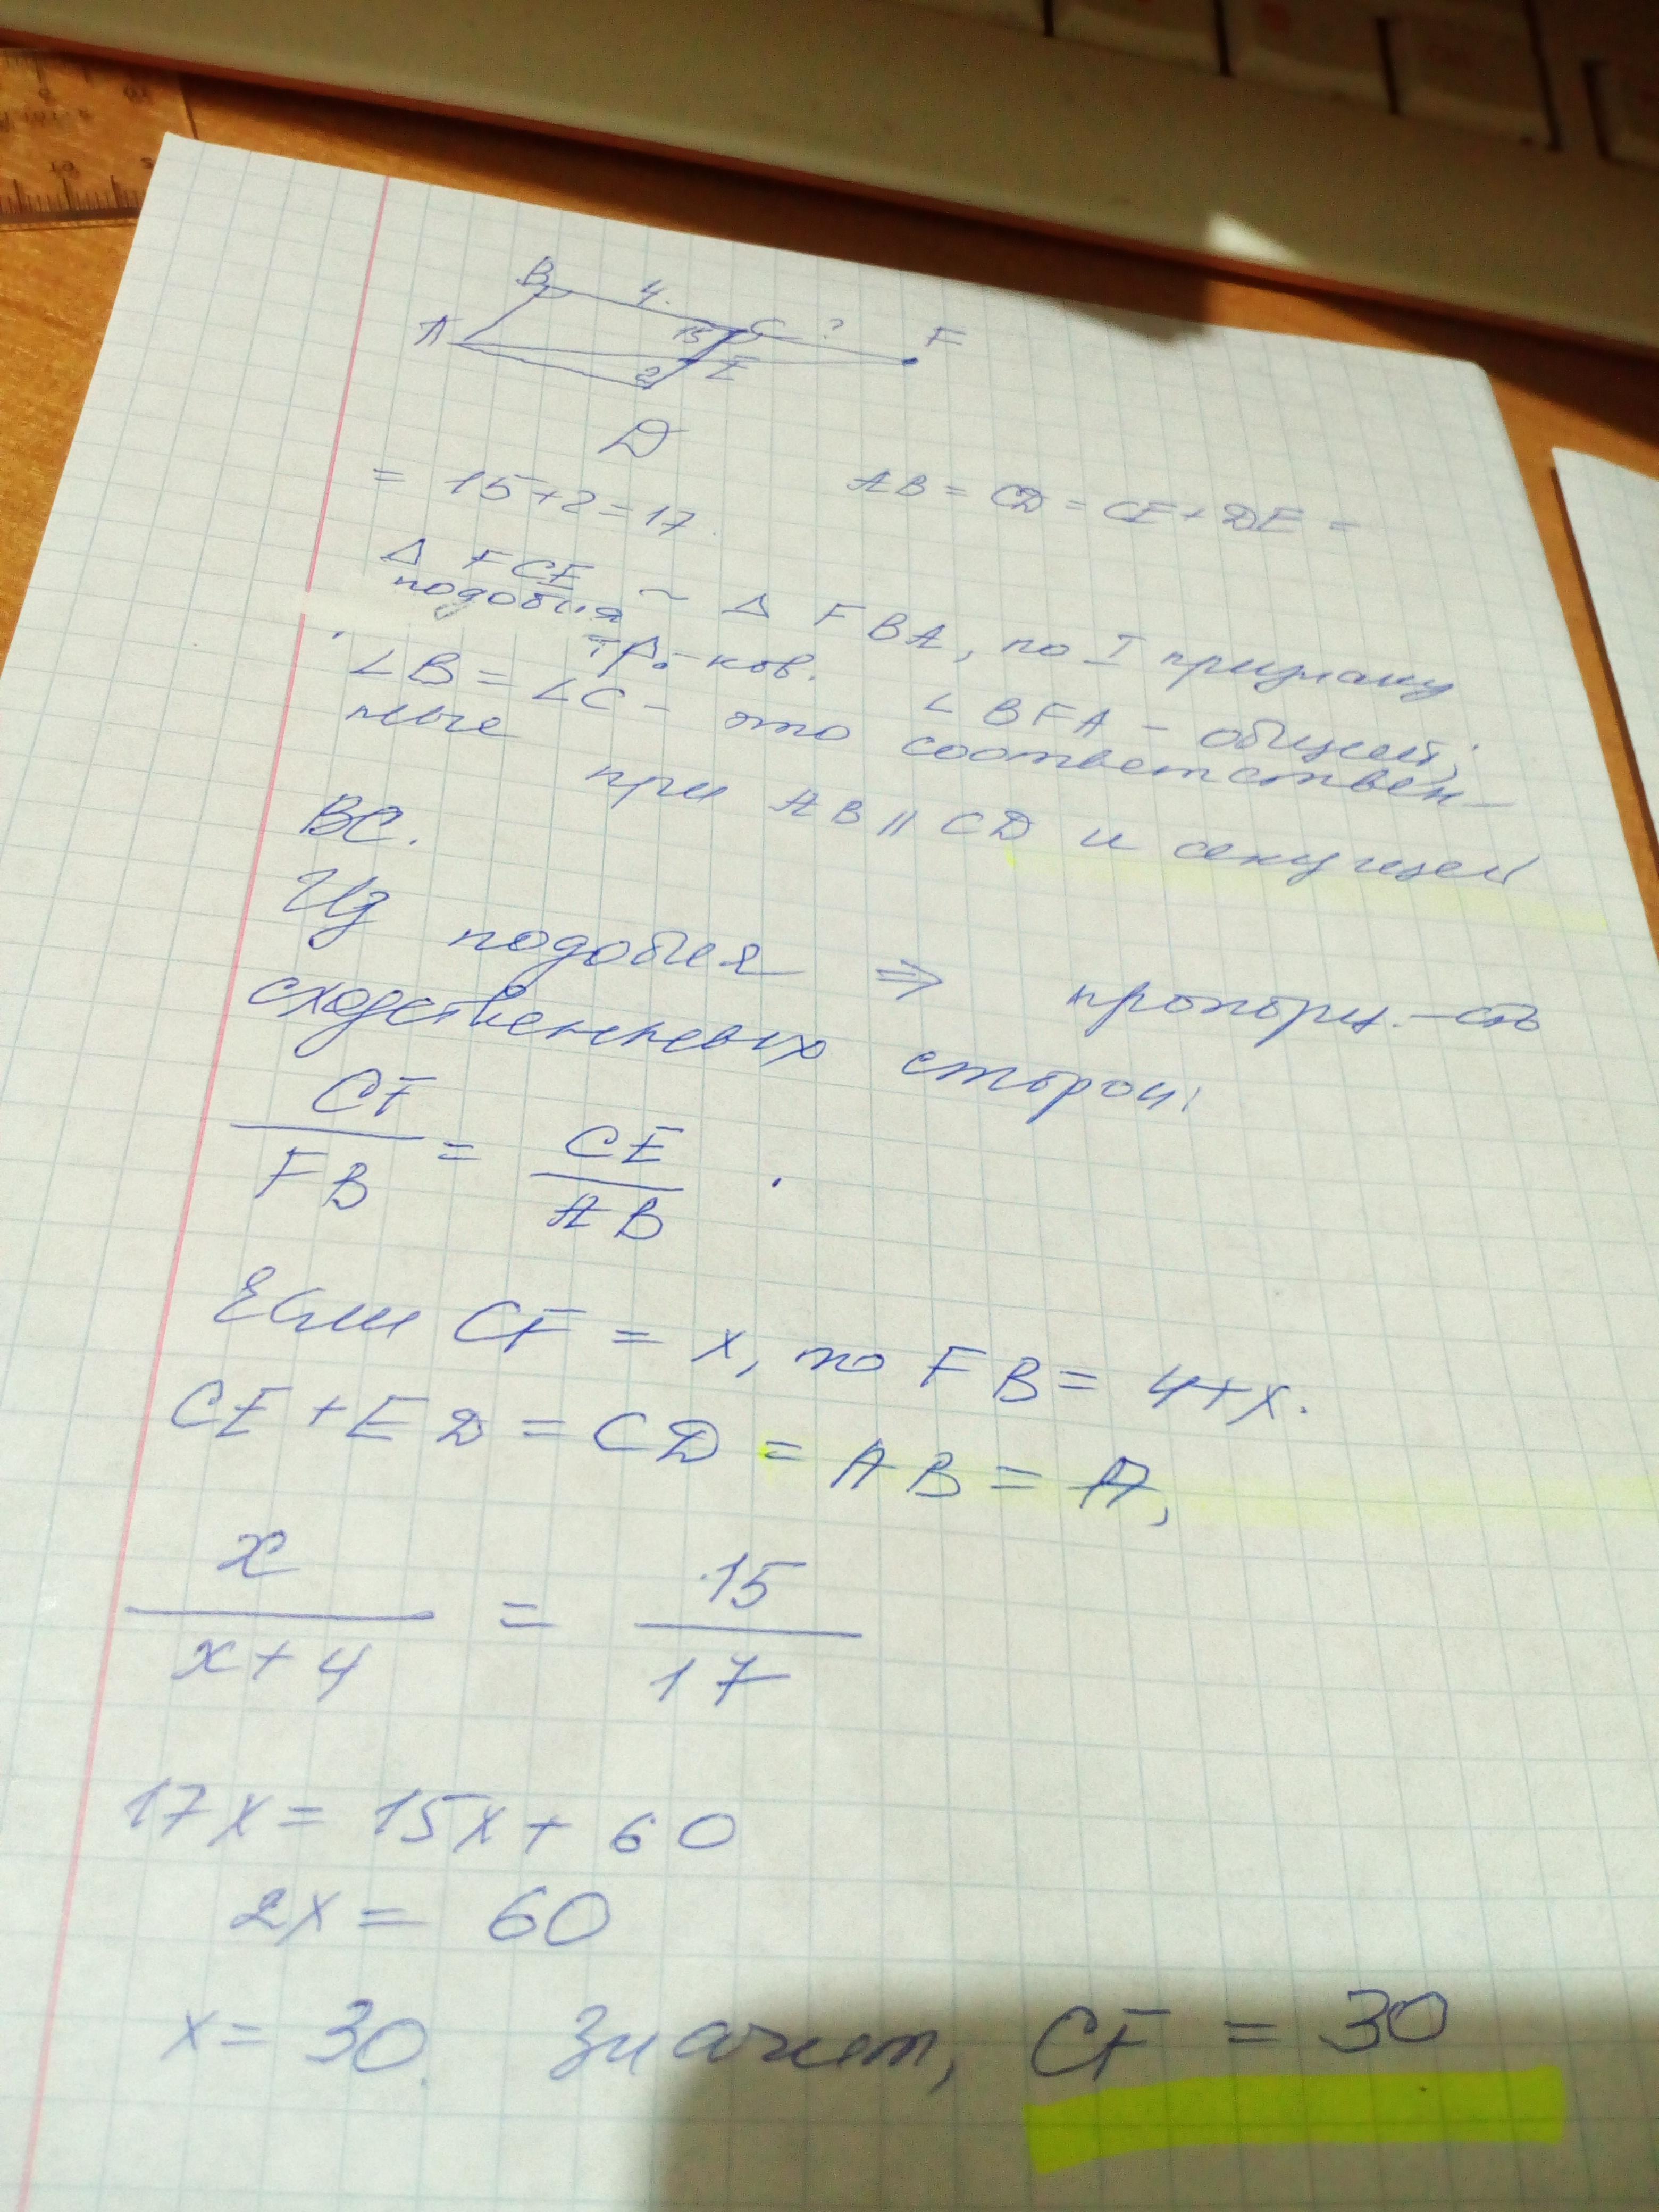 B 4 C ? F
A 15 E
2
D
AB = CD = CE + DE =
= 15+2=17.
Δ FCE ~ Δ FBA, по I признаку
подобия тр.-ков. ∠BFA – общий;
∠B = ∠C – это соответствен-
ные при AB || CD и секущей
BC.
Из подобия ⇒ пропорц.-сть
сходственных сторон:
CF/FB = CE/AB.
Если CF = x, то FB = 4+x.
CE + ED = CD = AB =
x/x+4 = 15/17
17x = 15x + 60
2x = 60
x = 30. Значит, CF = 30